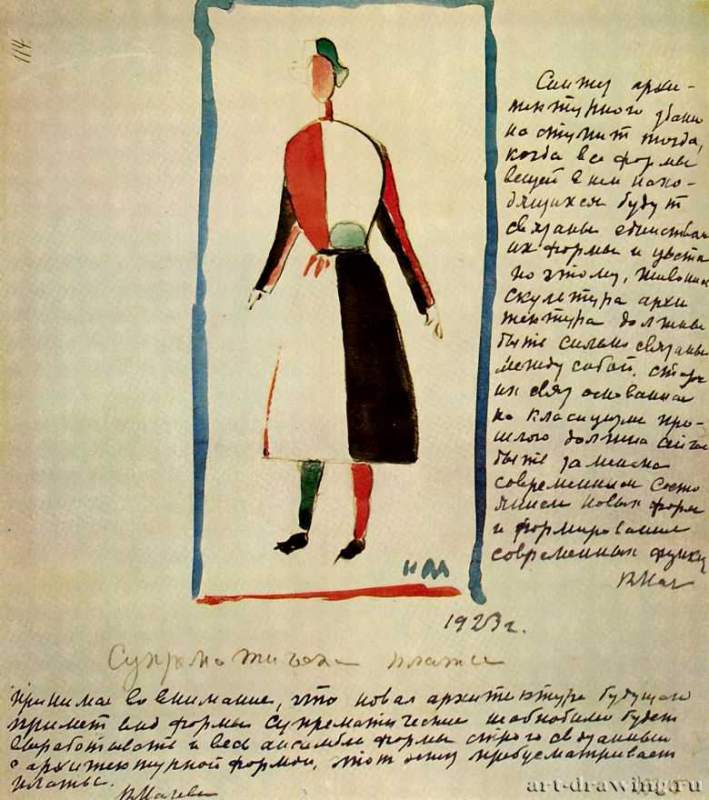 114.
Синтез архи-
тектурного здани
наступит тогда,
когда все формы
вещей в нем нахо-
дящихся будут
связаны единством
их формы и цвета
по этому, живопис
скульптура архи
тектура должны
быть сильно связаны
между собой.
их связ основанная
на класицизме про-
шлого должна
быть заменена
современным состо
янием новых форм
и формирования
современных функц
К Мал
КМ
1923 г.
Супрематическ платье
Принимая во внимание, что новая архитектура будущего
примет вид формы супрематические необходимо будет
выработать и весь ансамбль формы строго связанный
с архитектурной формой, этот эскиз предусматривает
платье.
К Малев
art-drawing.ru